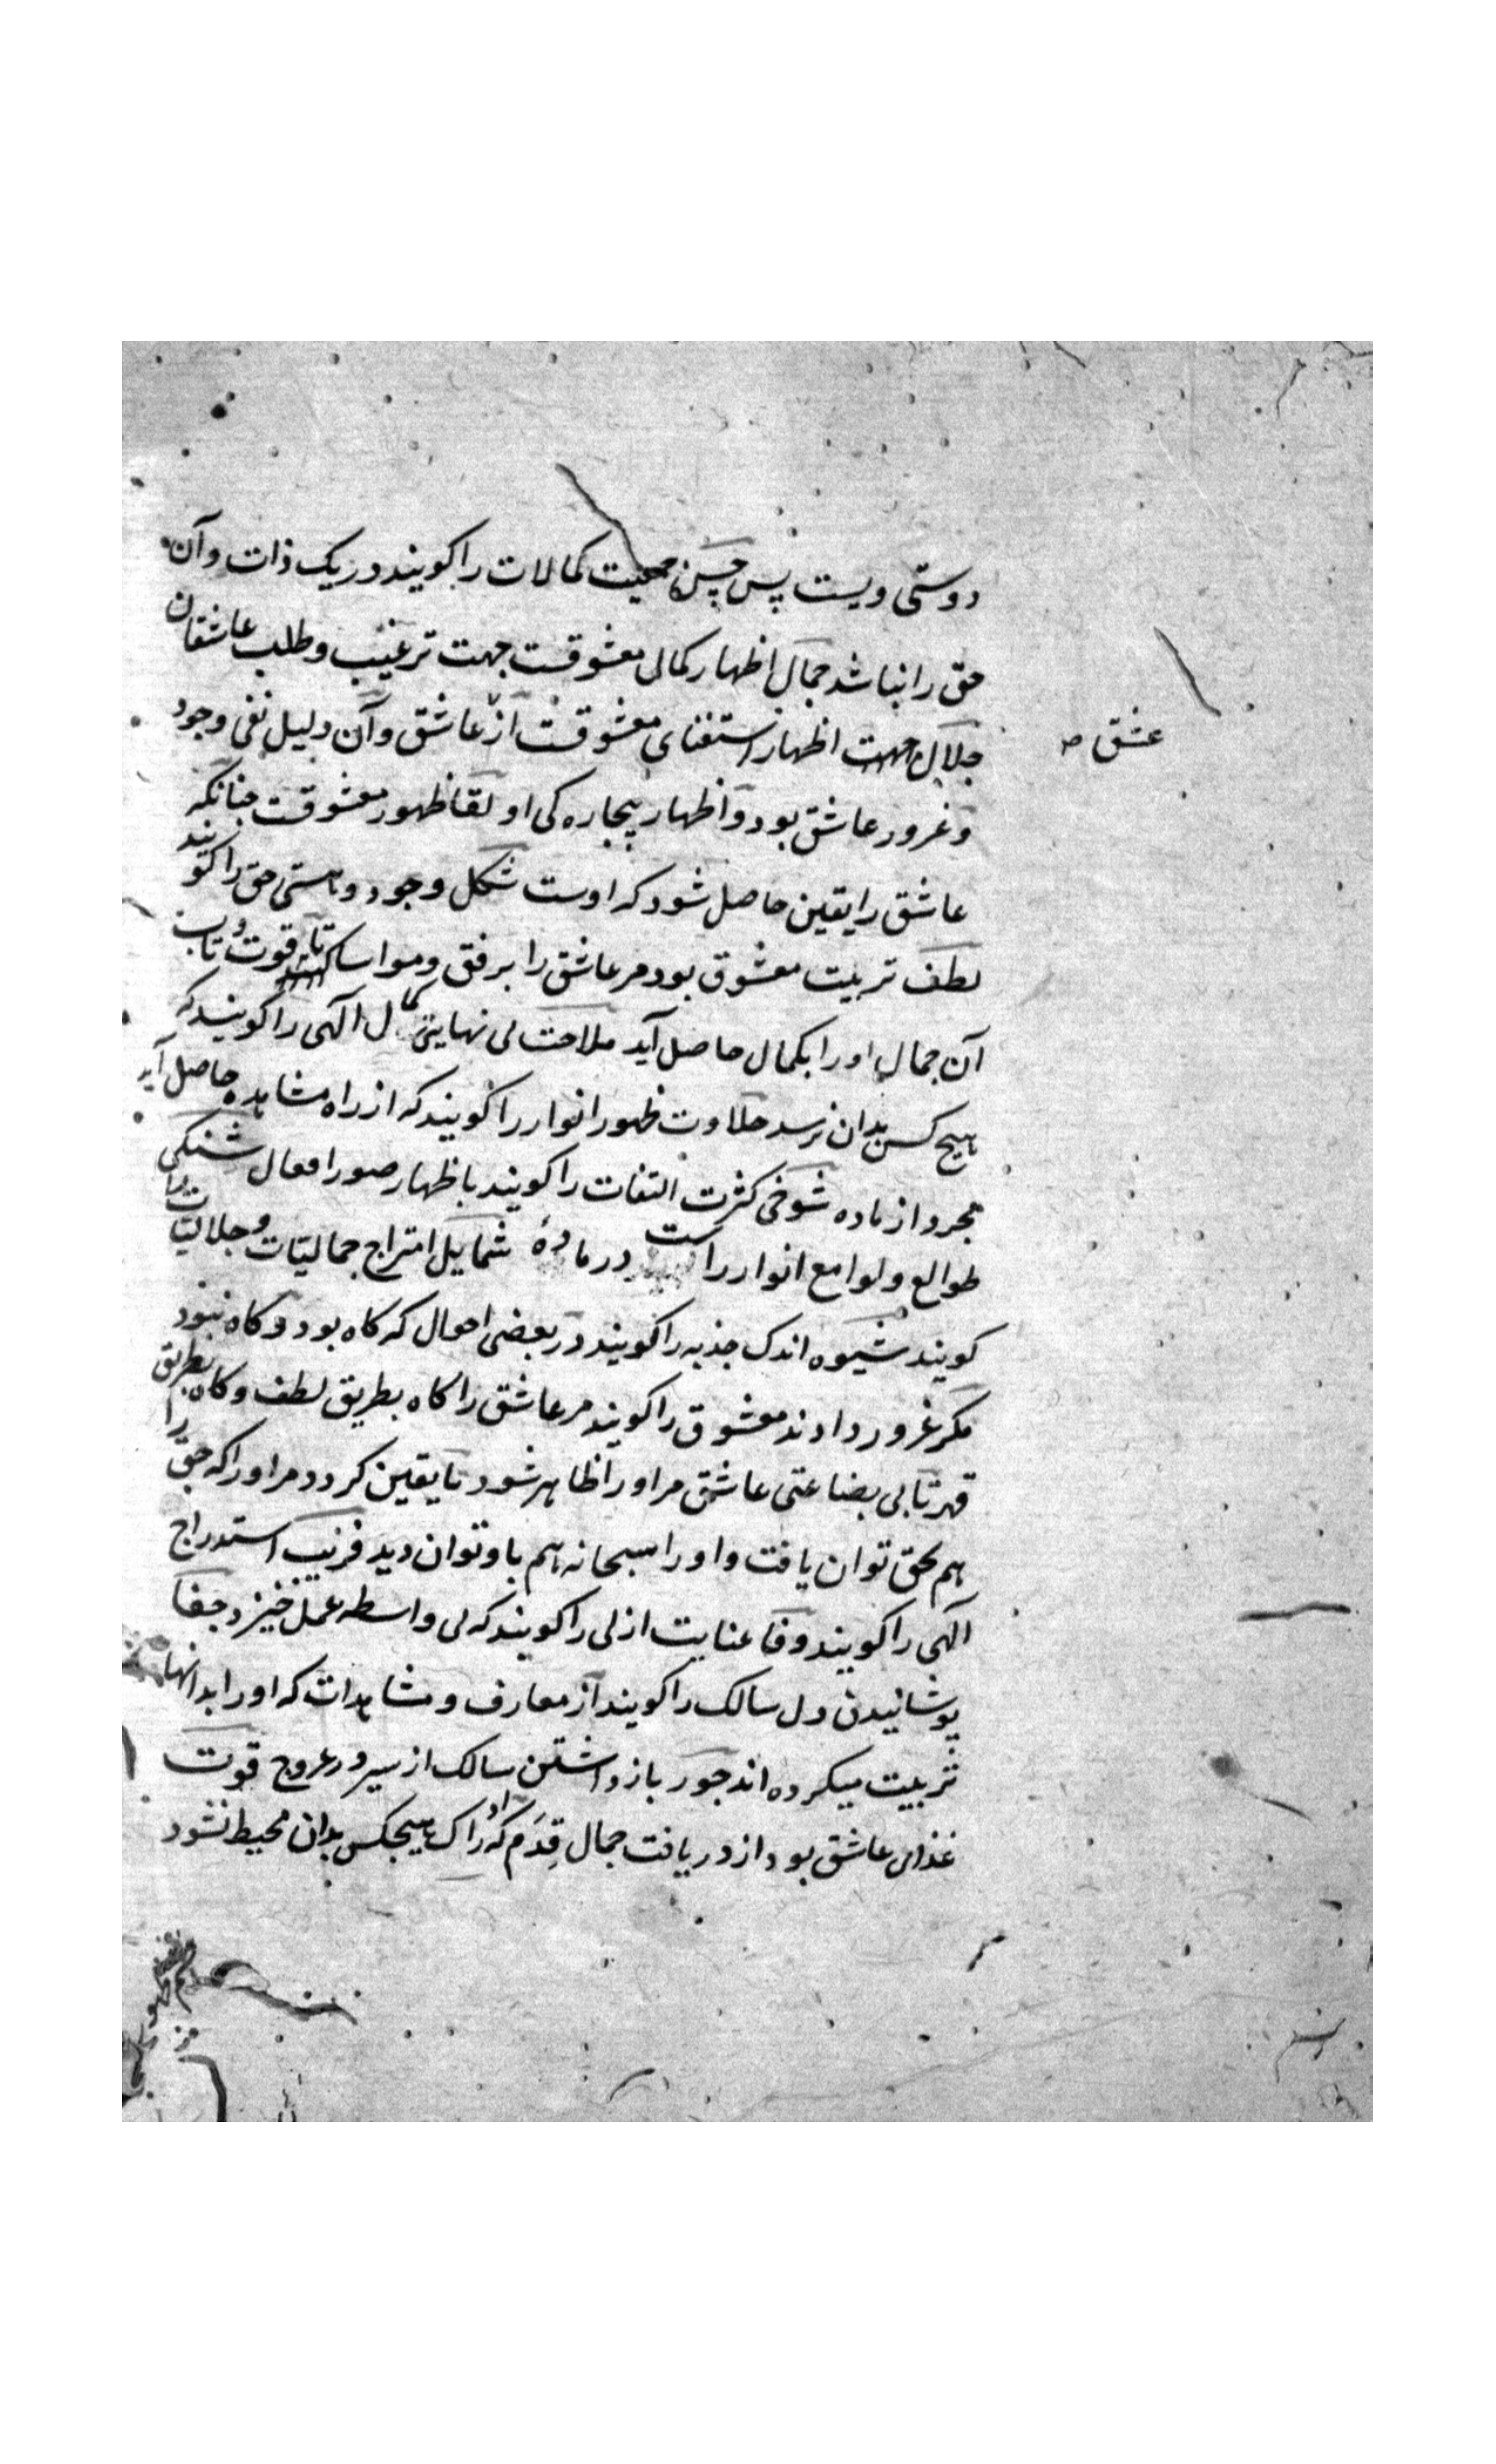 دوستی ویست پس حسن جمعیت کمالات را کویند در یک ذات و آن
حق را نباشد جمال اظهار کمالی معشوقست جهت ترغیب و طلب عاشقان
جلال اظهار استغنای معشوقست از عاشق و آن دلیل نفی وجود
عشق صه
و غرور عاشق بود و اظهار بیچاره کی او لقا ظهور معشوقست چنانکه
عاشق را یقین حاصل شود که اوست شکل وجود و هستی حق را کویند
لطف تربیت معشوق بود مر عاشق را برفق و مواسا تا قوت و تاب
آن جمال او را بکمال حاصل آید ملاحت بی نهایتی کمال الهی را کویند که
هیچ کس بدان نرسد حلاوت ظهور انوار را کویند که از راه مشاهده حاصل آید
مجرد از ماده شوخی کثرت التفات را کویند باظهار صور افعال شنکی
طوالع و لوامع انوار راست در مادهٔ شمایل امتزاج جمالیات و جلالیات را
کویند شیوه اندک جذبه را کویند در بعضی احوال که کاه بود و کاه نبود
مکر غرور دادند معشوق را کویند مر عاشق را کاه بطریق لطف و کاه بطریق
قهر تا بی بضاعتی عاشق مر او را ظاهر شود تا یقین کردد مر او را که حق را
هم بحق توان یافت و او را سبحانه هم باو توان دید فریب استدراج
الهی را کویند وفا عنایت ازلی را کویند که بی واسطه عمل خیزد جفا
پوشانیدن دل سالک را کویند از معارف و مشاهدات که او را بدانها
تربیت میکرده اند جور باز داشتن سالک از سیر در عروج قوت
غذای عاشق بود از دریافت جمال قِدَم که ادراک هیچکس بدان محیط نشود